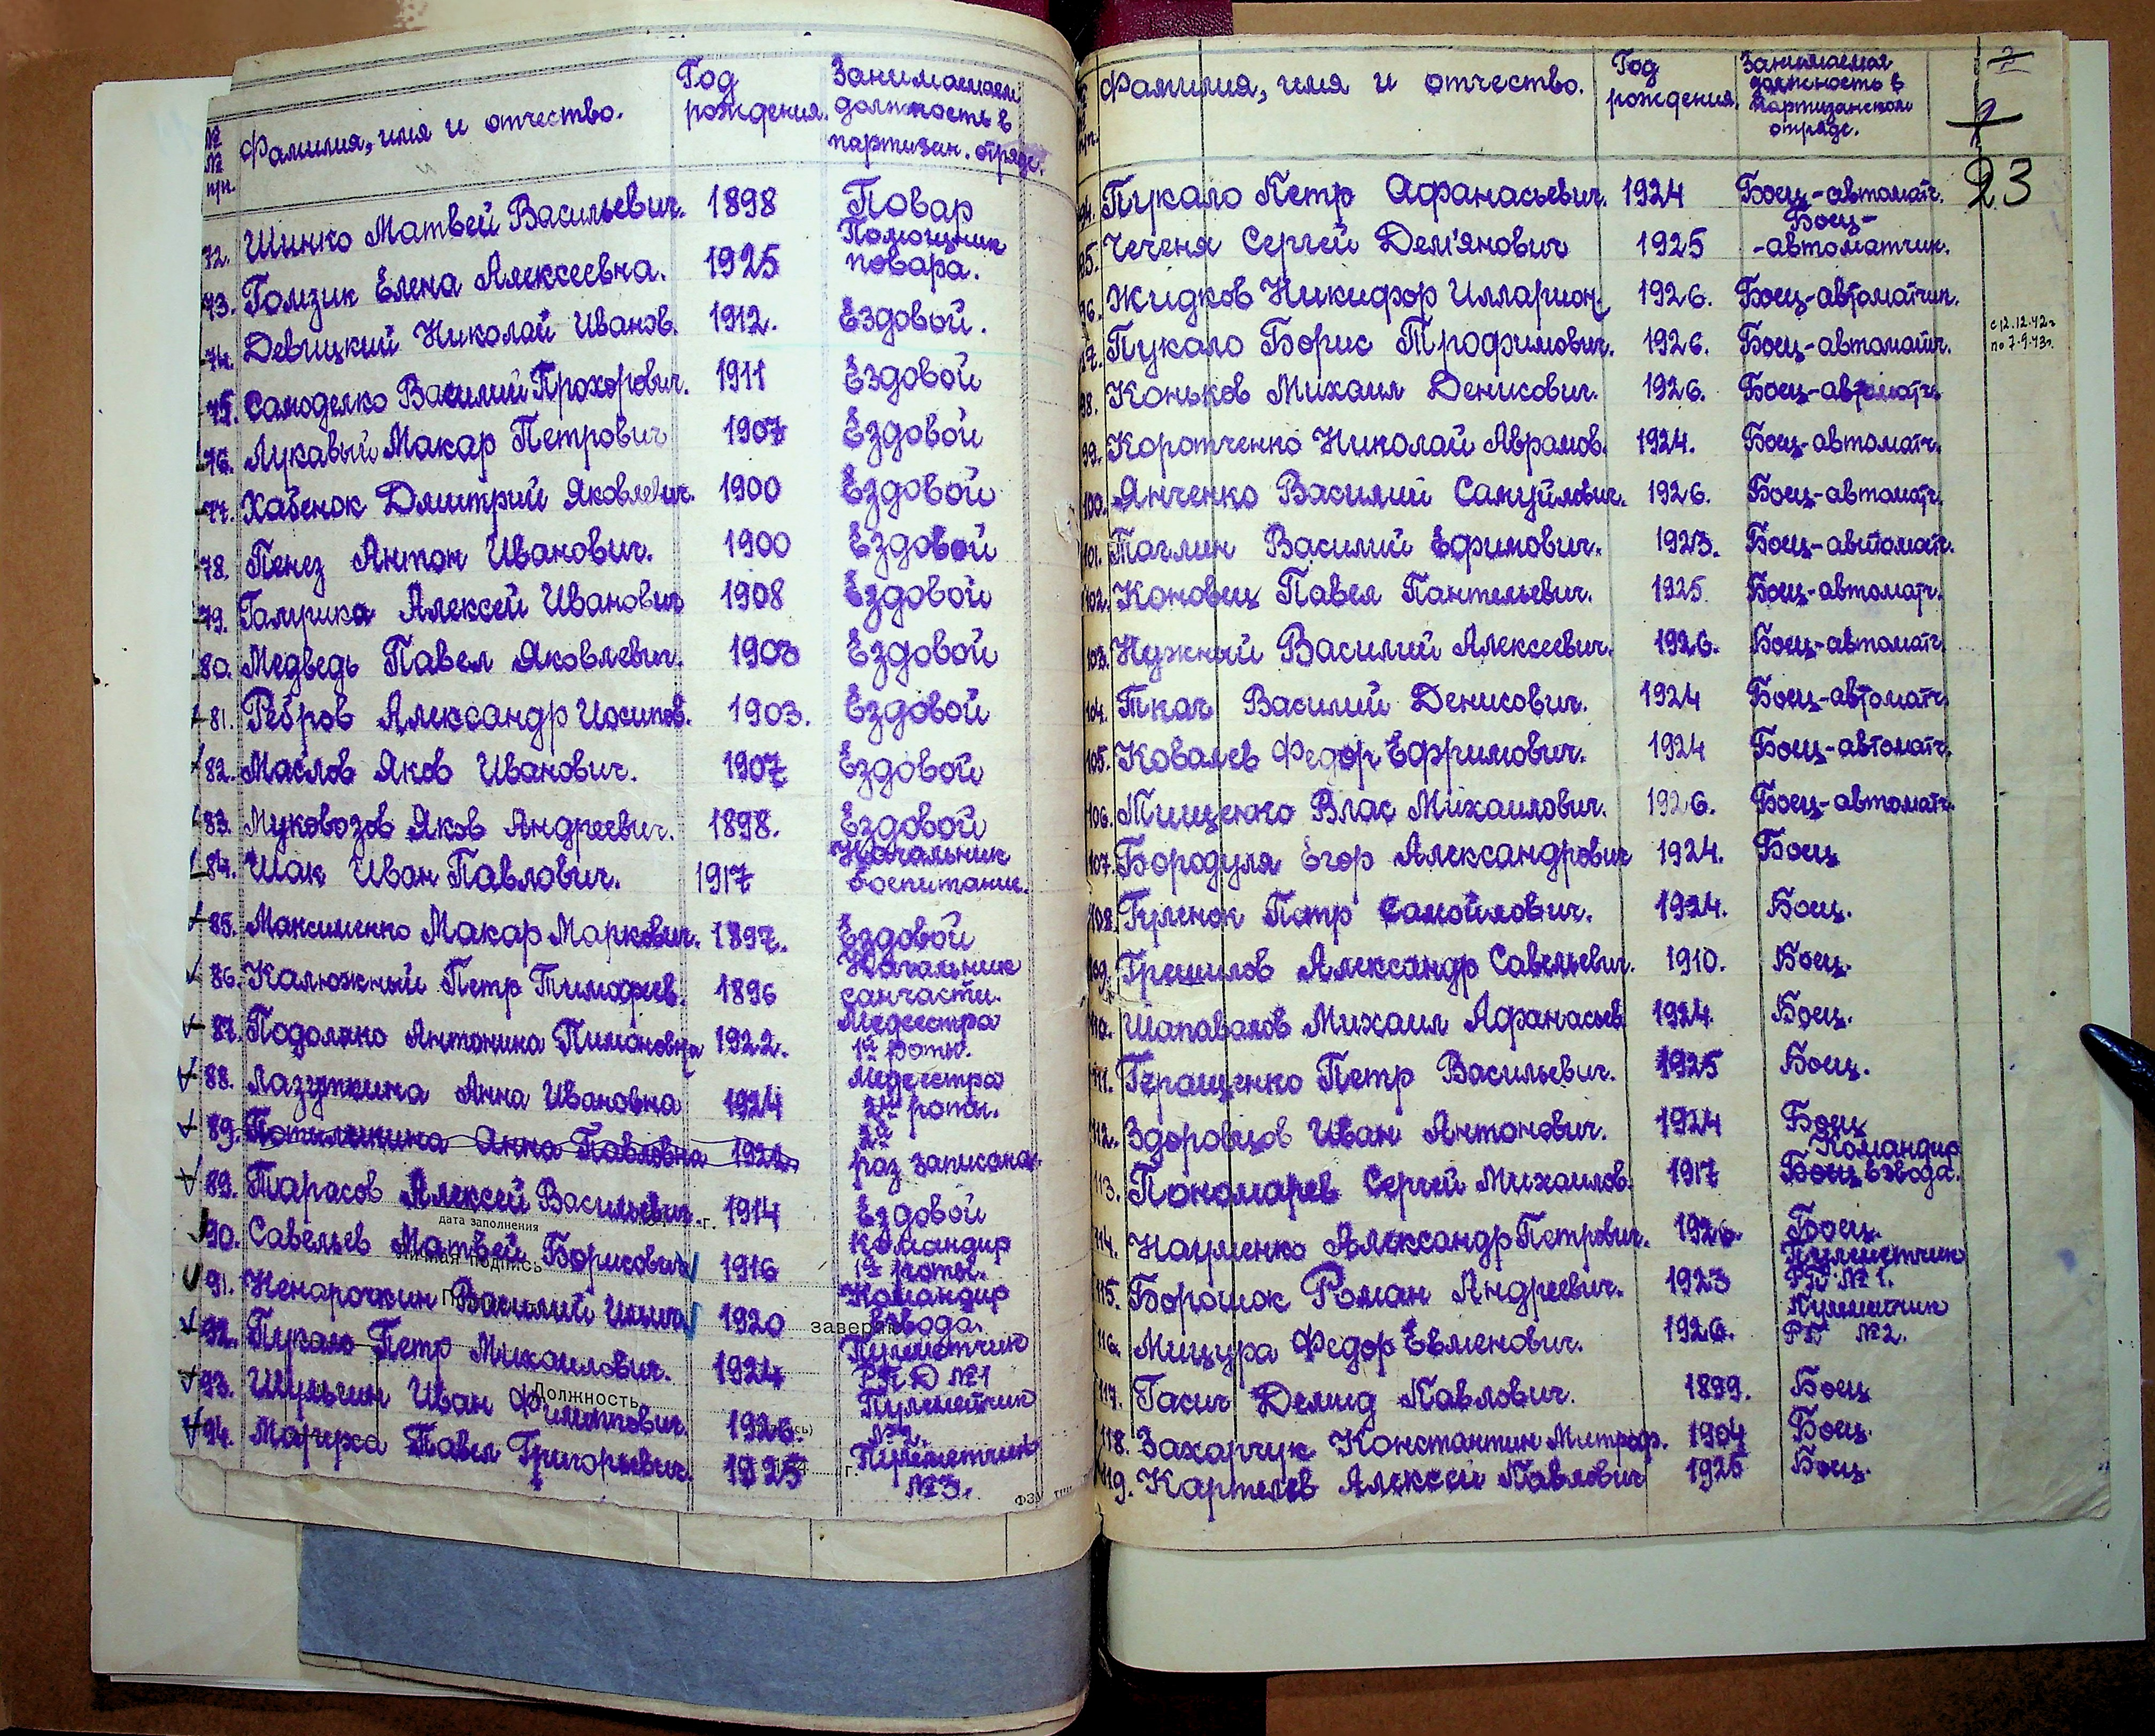 № № п/п. Фамилия, имя и отчество. Год рождения. Занимаемая должность в партизан. отряде.
72. Шинко Матвей Васильевич. 1898 Повар
73. Гомзик Елена Алексеевна. 1925 Помощник повара.
74. Девицкий Николай Иванов. 1912. Ездовой.
75. Самоделко Василий Прохорович. 1911 Ездовой
76. Лукавый Макар Петрович 1907 Ездовой
77. Хабенок Дмитрий Яковлевич. 1900 Ездовой
78. Пенез Антон Иванович. 1900 Ездовой
79. Алексей Иванович 1908 Ездовой
80. Медведь Павел Яковлевич. 1903 Ездовой
81. Ребров Александр Иосипов. 1903. Ездовой
82. Маслов Яков Иванович. 1907 Ездовой
83. Муковозов Яков Андреевич. 1898. Ездовой
84. Шак Иван Павлович. 1917 Начальник воспитание.
85. Максименко Макар Маркович. 1897. Ездовой
86. Калюжный Петр Тимофеев. 1896 Начальник санчасти.
87. Подоляко Антонина Пимоновна 1922. Медсестра 1й роты.
88. Лазупкина Анна Ивановна 1924 Медсестра 2й роты.
89. Анна Павловна 1922. 2й раз записана.
89. Тарасов Алексей Васильевич. 1914 Ездовой
дата заполнения г.
90. Савельев Матвей Борисович 1916 Командир 1й роты.
Личная подпись
91. Ненарочкин Василий Ильич 1920 Командир взвода.
заверяю
92. Пукало Петр Михаилович. 1924 Пулеметчик РПД №1
Должность
93. Шульгин Иван Филиппович. 1926. Пулеметчик №2.
94. Марчуха Павел Григорьевич. 1925 Пулеметчик №3.
Фамилия, имя и отчество. Год рождения. Занимаемая должность в партизанском отряде.
23
94. Пукало Петр Афанасьевич. 1924 Боец-автоматч.
95. Чеченя Сергей Дем'янович 1925 Боец-автоматчик.
96. Жидков Никифор Илларион. 1926. Боец-автоматчик.
97. Пукало Борис Трофимович. 1926. Боец-автоматч. с 12.12.42г по 7.9.43г.
98. Коньков Михаил Денисович. 1926. Боец-автоматч.
99. Коротченко Николай Аврамов. 1924. Боец-автоматч.
100. Янченко Василий Самуйлович. 1926. Боец-автоматч.
101. Таглин Василий Ефимович. 1923. Боец-автоматч.
102. Коновец Павел Пантельевич. 1925 Боец-автоматч.
103. Нужный Василий Алексеевич. 1926. Боец-автоматч
104. Ткач Василий Денисович. 1924 Боец-автоматч
105. Ковалев Федор Ефримович. 1924 Боец-автоматч.
106. Тищенко Влас Михаилович. 1926. Боец-автоматч.
107. Бородуля Егор Александрович 1924. Боец
108. Гуленок Петр Самойлович. 1924. Боец.
109. Грешилов Александр Савельевич. 1910. Боец.
110. Шаповалов Михаил Афанасьев 1924. Боец.
111. Геращенко Петр Васильевич. 1925 Боец.
112. Здоровцов Иван Антонович. 1924 Боец
113. Пономарев Сергей Михаилов. 1917 Боец Командир взвода.
114. Науменко Александр Петрович. 1926. Боец.
115. Борошок Роман Андреевич. 1923 Пулеметчик РП №1.
116. Мицура Федор Евменович. 1926. Пулеметчик РП №2.
117. Гасич Демид Павлович. 1899. Боец
118. Захарчук Константин Митроф. 1904 Боец.
119. Картелев Алексей Павлович 1925 Боец.